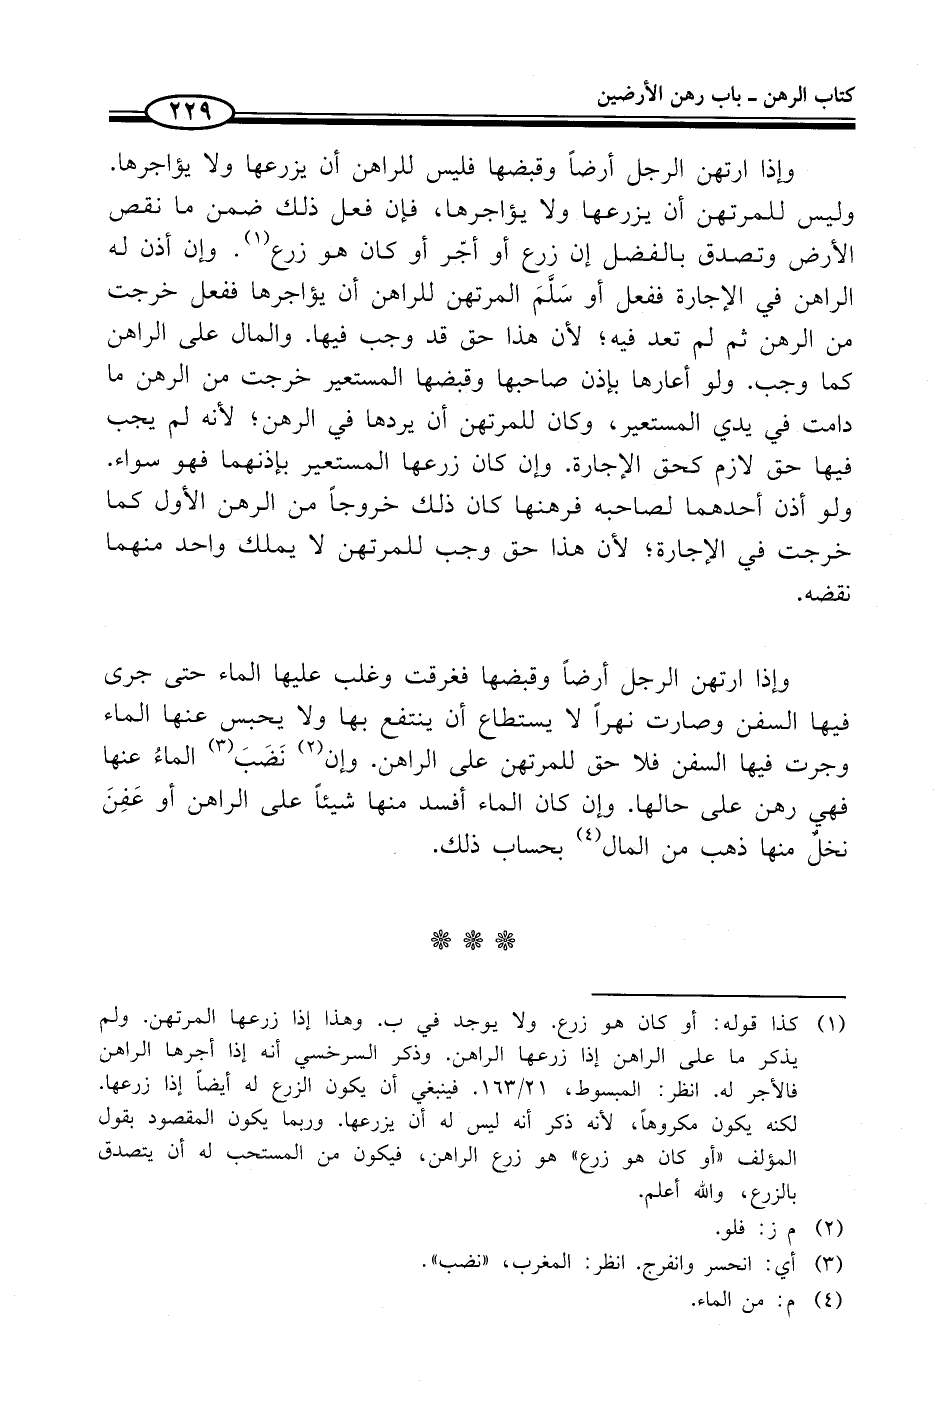 كتاب الرهن - باب رهن الأرضين
٢٢٩
وإذا ارتهن الرجل أرضاً وقبضها فليس للراهن أن يزرعها ولا يؤاجرها.
وليس للمرتهن أن يزرعها ولا يؤاجرها، فإن فعل ذلك ضمن ما نقص
الأرض وتصدق بالفضل إن زرع أو أجّر أو كان هو زرع(١). وإن أذن له
الراهن في الإجارة ففعل أو سَلَّمَ المرتهن للراهن أن يؤاجرها ففعل خرجت
من الرهن ثم لم تعد فيه؛ لأن هذا حق قد وجب فيها. والمال على الراهن
كما وجب. ولو أعارها بإذن صاحبها وقبضها المستعير خرجت من الرهن ما
دامت في يدي المستعير، وكان للمرتهن أن يردها في الرهن؛ لأنه لم يجب
فيها حق لازم كحق الإجارة. وإن كان زرعها المستعير بإذنهما فهو سواء.
ولو أذن أحدهما لصاحبه فرهنها كان ذلك خروجاً من الرهن الأول كما
خرجت في الإجارة؛ لأن هذا حق وجب للمرتهن لا يملك واحد منهما
نقضه.
وإذا ارتهن الرجل أرضاً وقبضها فغرقت وغلب عليها الماء حتى جرى
فيها السفن وصارت نهراً لا يستطاع أن ينتفع بها ولا يحبس عنها الماء
وجرت فيها السفن فلا حق للمرتهن على الراهن. وإن(٢) نَضَبَ(٣) الماءُ عنها
فهي رهن على حالها. وإن كان الماء أفسد منها شيئاً على الراهن أو عَفِنَ
نخلٌ منها ذهب من المال(٤) بحساب ذلك.
❊ ❊ ❊
(١) كذا قوله: أو كان هو زرع. ولا يوجد في ب. وهذا إذا زرعها المرتهن. ولم
يذكر ما على الراهن إذا زرعها الراهن. وذكر السرخسي أنه إذا أجرها الراهن
فالأجر له. انظر: المبسوط، ١٦٣/٢١. فينبغي أن يكون الزرع له أيضاً إذا زرعها.
لكنه يكون مكروهاً، لأنه ذكر أنه ليس له أن يزرعها. وربما يكون المقصود بقول
المؤلف «أو كان هو زرع» هو زرع الراهن، فيكون من المستحب له أن يتصدق
بالزرع، والله أعلم.
(٢) م ز: فلو.
(٣) أي: انحسر وانفرج. انظر: المغرب، «نضب».
(٤) م: من الماء.